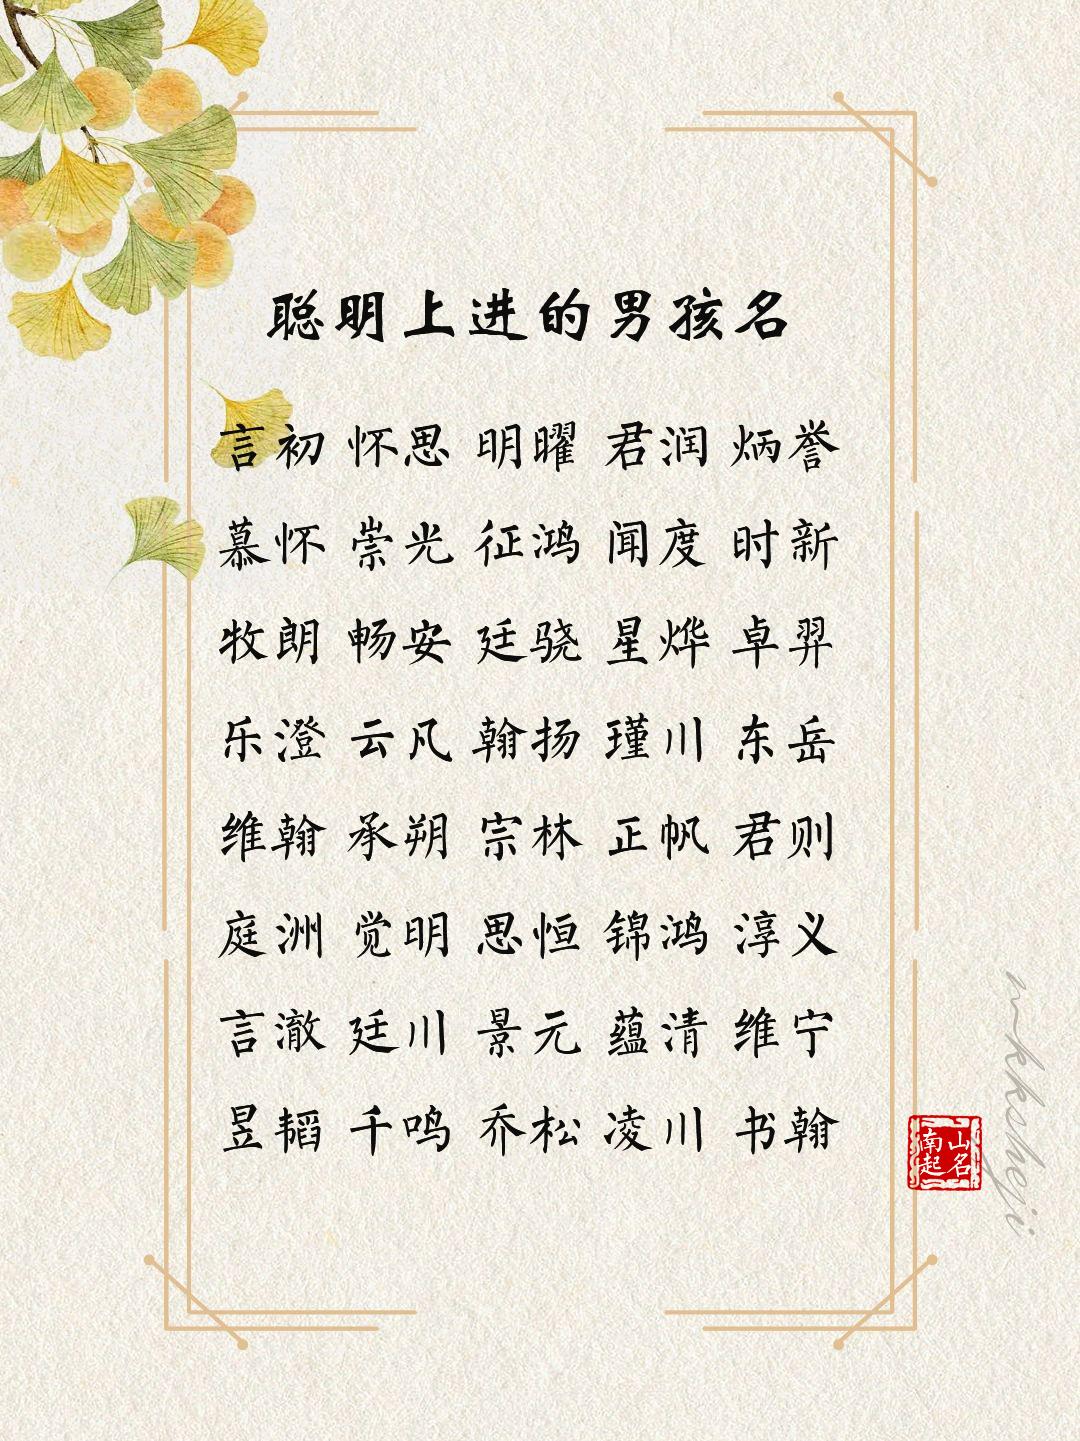 聪明上进的男孩名
言初 怀思 明曜 君润 炳誉
慕怀 崇光 征鸿 闻度 时新
牧朗 畅安 廷骁 星烨 卓羿
乐澄 云凡 翰扬 瑾川 东岳
维翰 承朔 宗林 正帆 君则
庭洲 觉明 思恒 锦鸿 淳义
言澈 廷川 景元 蕴清 维宁
昱韬 千鸣 乔松 凌川 书翰
山名
南起
mkksheji